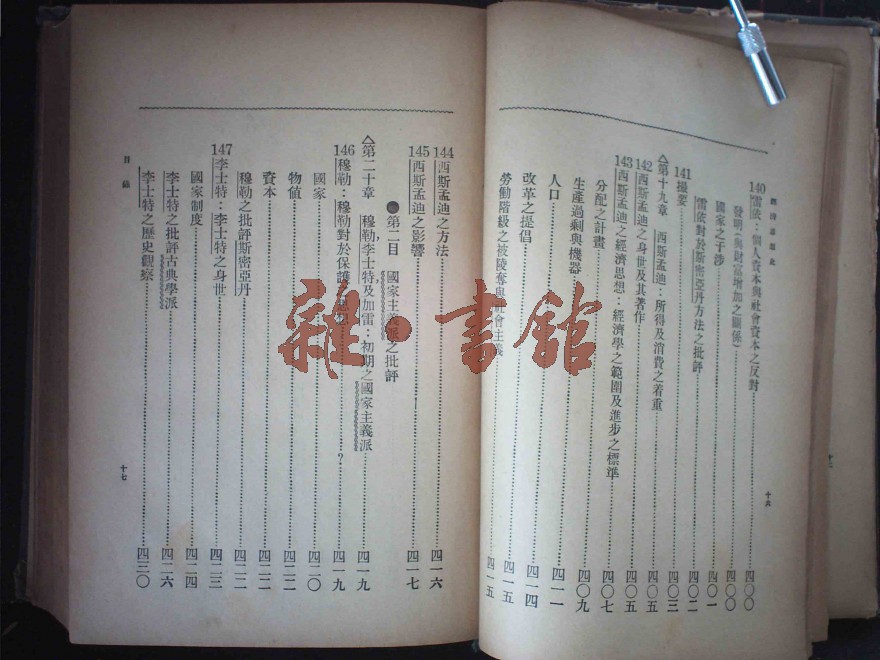 經濟思想史
140 雷依：個人資本與社會資本之反對……四〇〇
發明（與財富增加之關係）……四〇〇
國家之干涉……四〇一
雷依對於斯密亞丹方法之批評……四〇二
141 撮要……四〇三
△第十九章 西斯孟迪：所得及消費之着重……四〇五
142 西斯孟迪之身世及其著作……四〇五
143 西斯孟迪之經濟思想：經濟學之範圍及進步之標準……四〇七
分配之計畫
生產過剩與機器……四〇九
人口……四一一
改革之提倡……四一四
勞働階級之被陵奪與社會主義……四一五
四一五
十六
144 西斯孟迪之方法……四一六
145 西斯孟迪之影響……四一七
第二目 國家主義派之批評
△第二十章 穆勒李士特及加雷：初期之國家主義派……四一九
146 穆勒：穆勒對於保護……？……四一九
國家……四二〇
物值……四二二
資本……四二二
穆勒之批評斯密亞丹……四二二
147 李士特：李士特之身世……四二三
國家制度……四二四
李士特之批評古典學派……四二六
李士特之歷史觀察……四三〇
目錄
十七
雜·書館